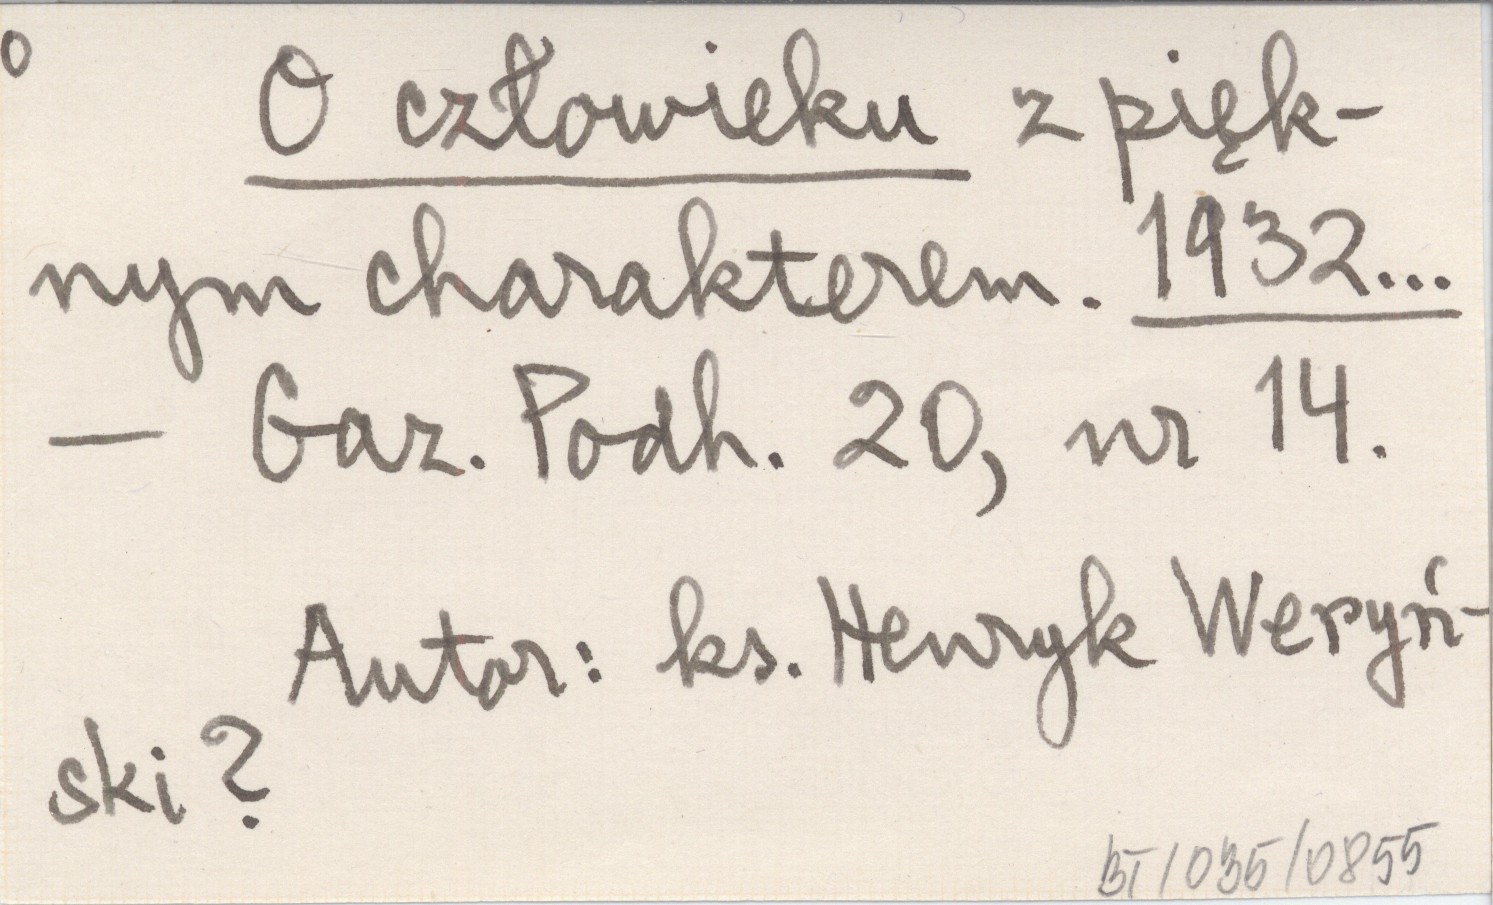 o
O człowieku z pięk-
nym charakterem. 1932...
— Gaz. Podh. 20, nr 14.
Autor: ks. Henryk Weryń-
ski?
BT/035/0855